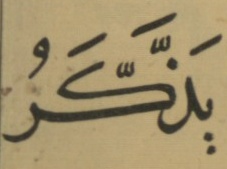 يَذَّكَّرُ